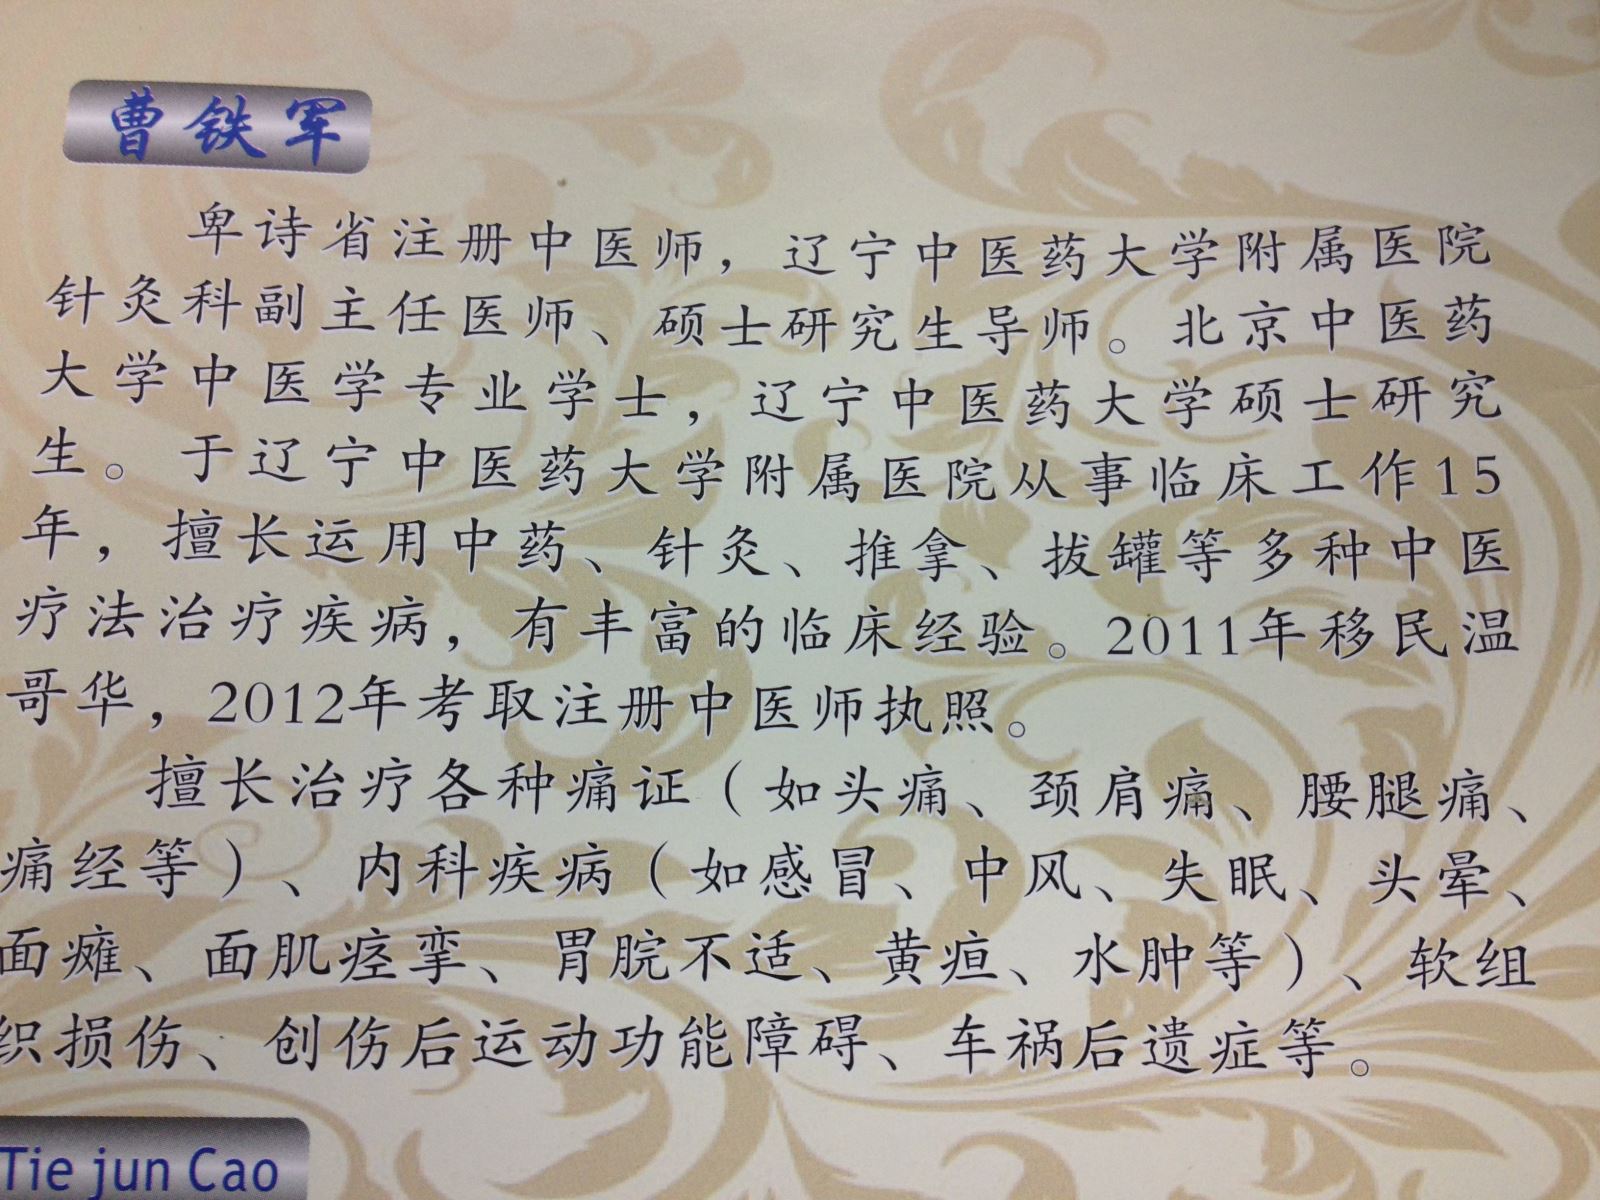 曹铁军
卑诗省注册中医师，辽宁中医药大学附属医院
针灸科副主任医师、硕士研究生导师。北京中医药
大学中医学专业学士，辽宁中医药大学硕士研究
生。于辽宁中医药大学附属医院从事临床工作15
年，擅长运用中药、针灸、推拿、拔罐等多种中医
疗法治疗疾病，有丰富的临床经验。2011年移民温
哥华，2012年考取注册中医师执照。
擅长治疗各种痛证（如头痛、颈肩痛、腰腿痛、
痛经等）、内科疾病（如感冒、中风、失眠、头晕、
面瘫、面肌痉挛、胃脘不适、黄疸、水肿等）、软组
织损伤、创伤后运动功能障碍、车祸后遗症等。
Tie jun Cao